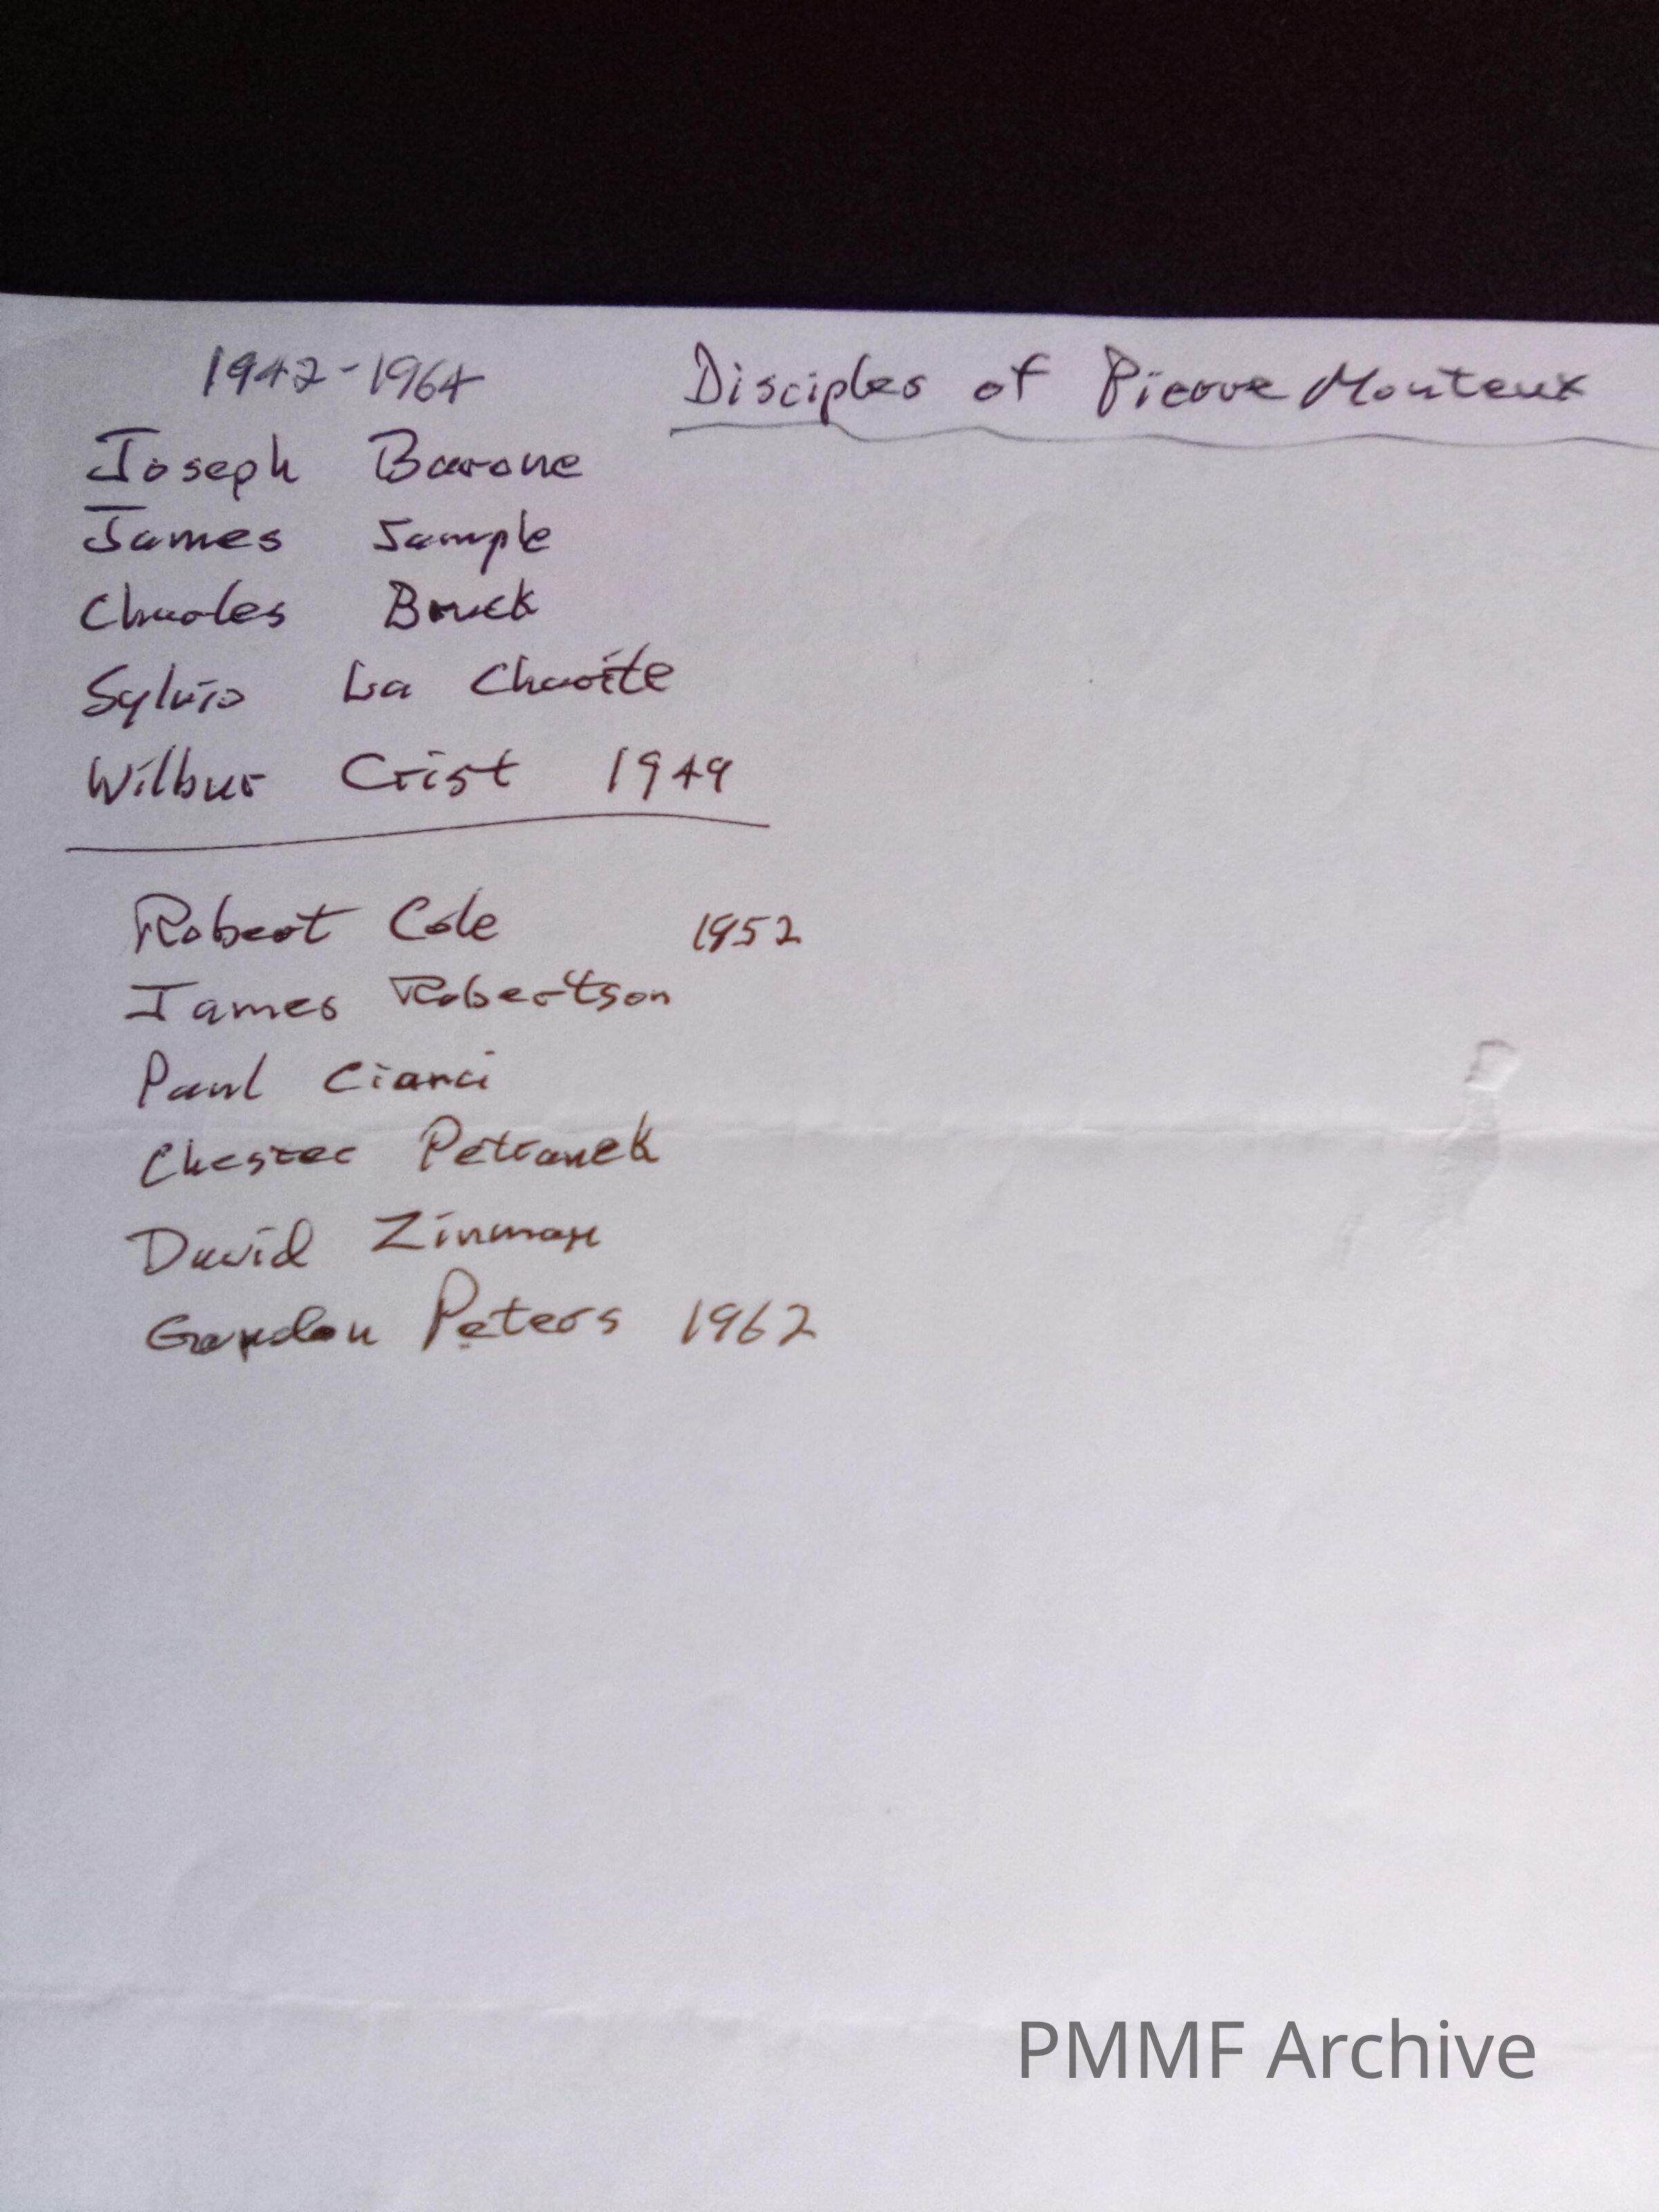 1942-1964 Disciples of Pierre Monteux
Joseph Barone
James Sample
Charles Bruck
Sylvio La Charite
Wilbur Crist 1949
Robert Cole 1952
James Robertson
Paul Cianci
Chester Petranek
David Zinman
Gordon Peters 1962
PMMF Archive